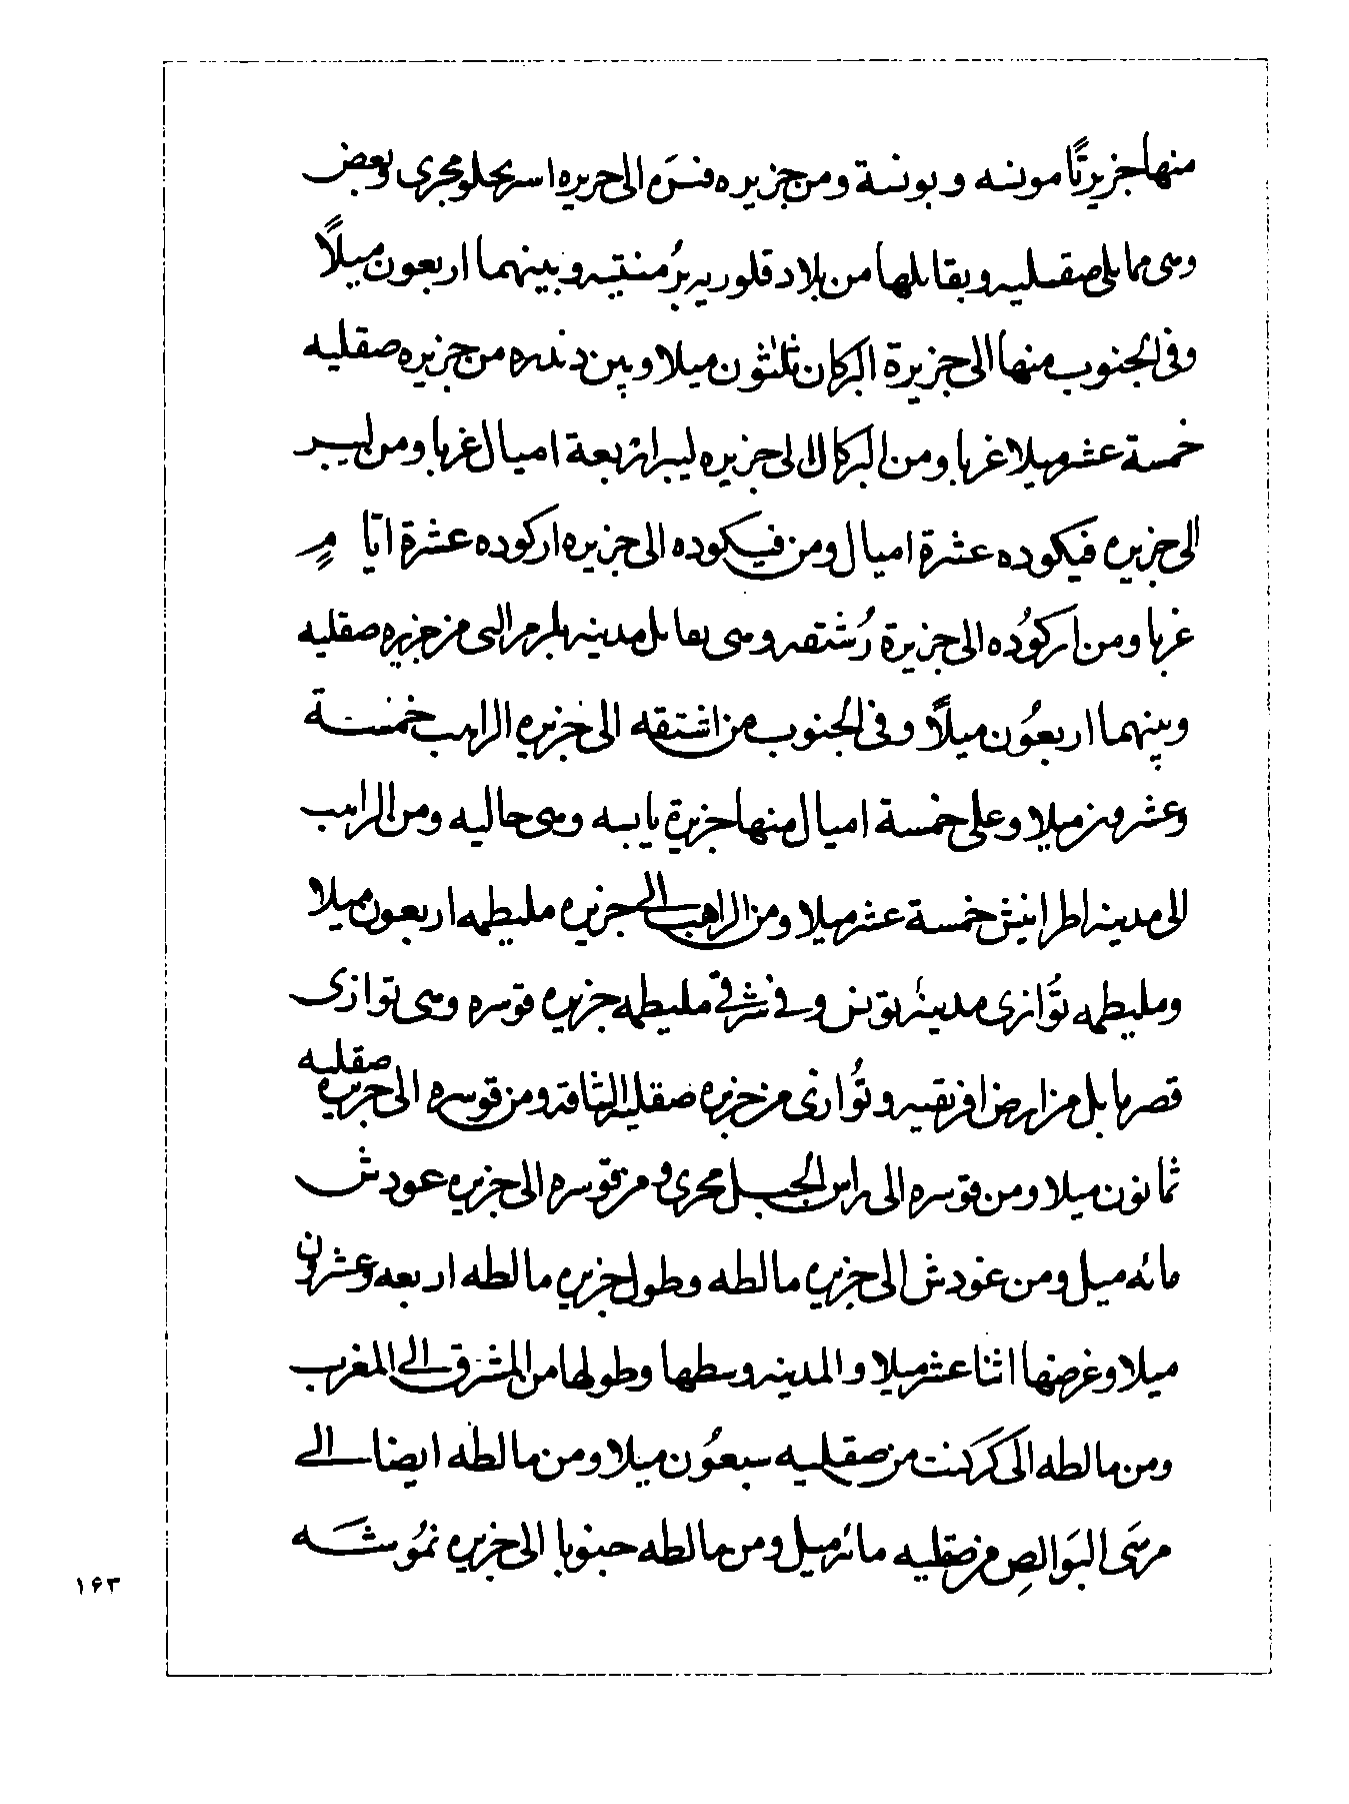 منها جزيرتًا مونسه و بونسة ومن جزيره فنسَره الى جريره اسر بحلو مجرى وبعض
وهى مما يلى صقليه ويقابلها من بلاد قلوريه بَرُمنتيه وبينهما اربعون ميلًا
وفى الجنوب منها الى جزيرة البركان ثلثون ميلا وبين دندره من جزيره صقليه
خمسة عشر ميلا غربا ومن البركان الى جزيره ليبر اربعة اميال غربا ومن ليبر
الى جزيره فيكوده عشرة اميال ومن فيكوده الى جزيره اركوده عشرة ايام
غربا ومن اركوُده الى جزيرة رُشتقه وهى تقابل مدينه بلرم التى من جزيره صقليه
وبينهما اربعُون ميلًا وفى الجنوب من اشتقه الى جزيره الراهب خمسة
وعشرون ميلا وعلى خمسة اميال منها جزيرة يابسه وهى خاليه ومن الراهب
الى مدينه اطرابنش خمسة عشر ميلا ومن الراهب الى جزيره مليطمه اربعون ميلا
ومليطمه تُوازى مدينه تونس وفى شرقى مليطمه جزيره قوسره وهى توازى
قصر هابل من ارض افريقيه وتُوازى من جزيره صقليه الشاقه ومن قوسره الى جزيره صقليه
ثمانون ميلا ومن قوسره الى راس الجبل مجرى و من قوسره الى جزيره عودش
مائه ميل ومن غودش الى جزيره مالطه وطول جزيره مالطه اربعه وعشرون
ميلا وعرضها اثنا عشر ميلا والمدينه وسطها وطولها من المشرق الى المغرب
ومن مالطه الى كَركَنت من صقليه سبعُون ميلا ومن مالطه ايضا الى
مرسَى البَوالصِ من صقليه مائه ميل ومن مالطه جنوبا الى جزيره نمُوشَه
١٦٣